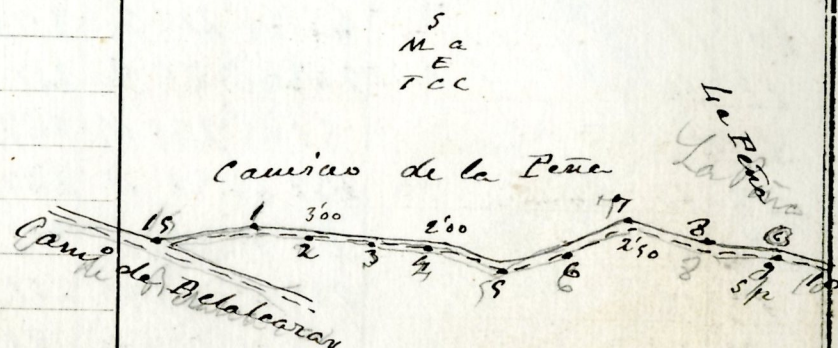 S
M a
E
T C C
La Peña
Camino de la Peña
La Peña
15 1 3'00 2 3 2'00 4 5 6 7 2'50 8 9 10
Camº de Belalcazar